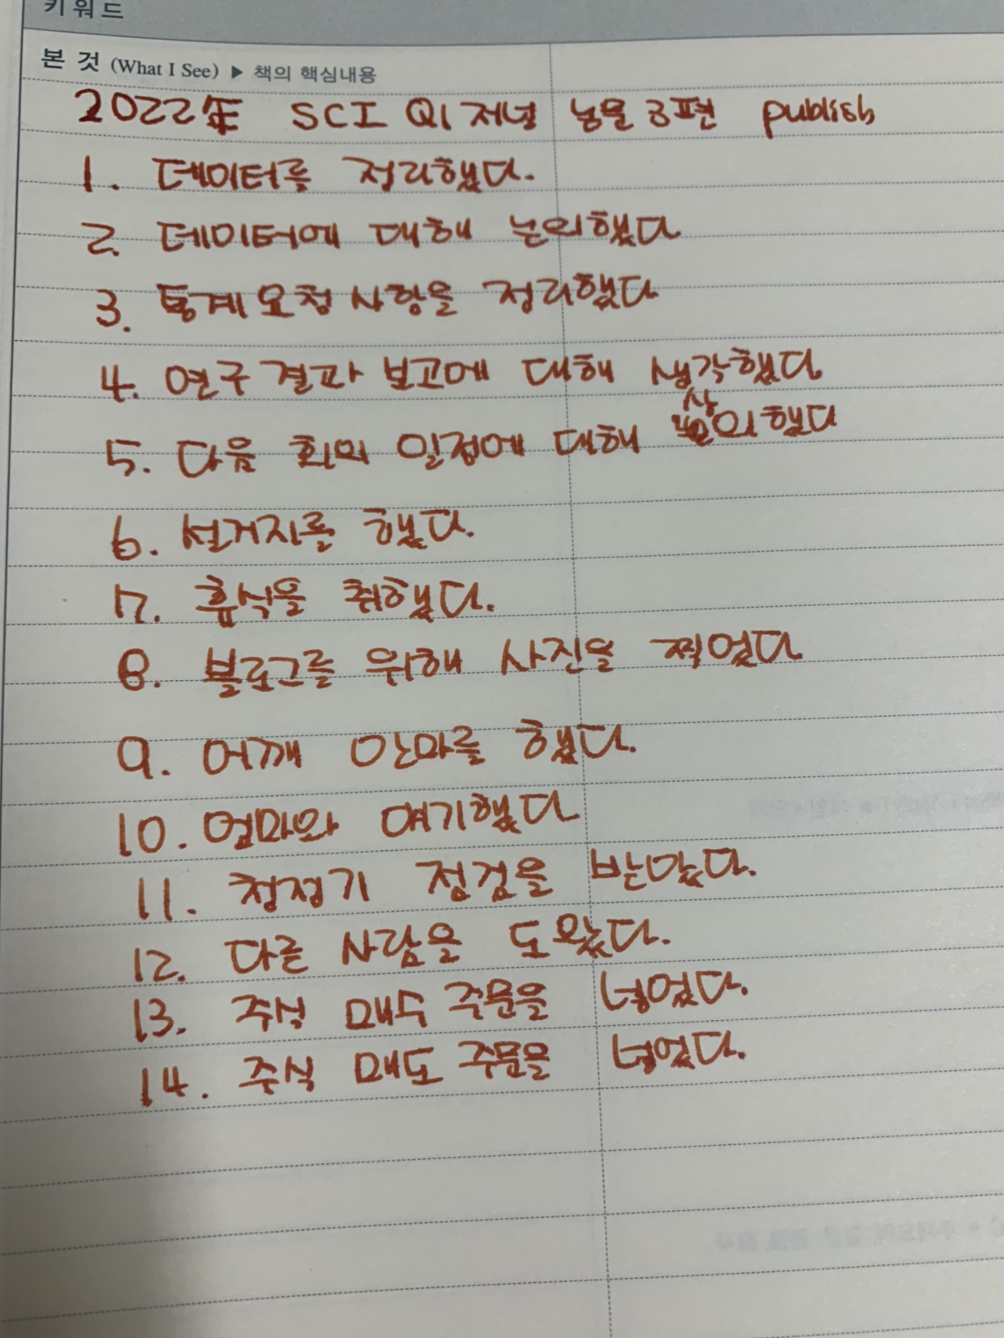 키워드
본 것 (What I See) ▶ 책의 핵심내용
2022年 SCI Q1 저널 논문 3편 publish
1. 데이터를 정리했다.
2. 데이터에 대해 논의했다
3. 통계 요청 사항을 정리했다
4. 연구 결과 보고에 대해 생각했다
5. 다음 회의 일정에 대해 상의했다
6. 설거지를 했다.
7. 휴식을 취했다.
8. 블로그를 위해 사진을 찍었다
9. 어깨 안마를 했다.
10. 엄마와 얘기했다
11. 청정기 점검을 받았다.
12. 다른 사람을 도왔다.
13. 주식 매수 주문을 넣었다.
14. 주식 매도 주문을 넣었다.